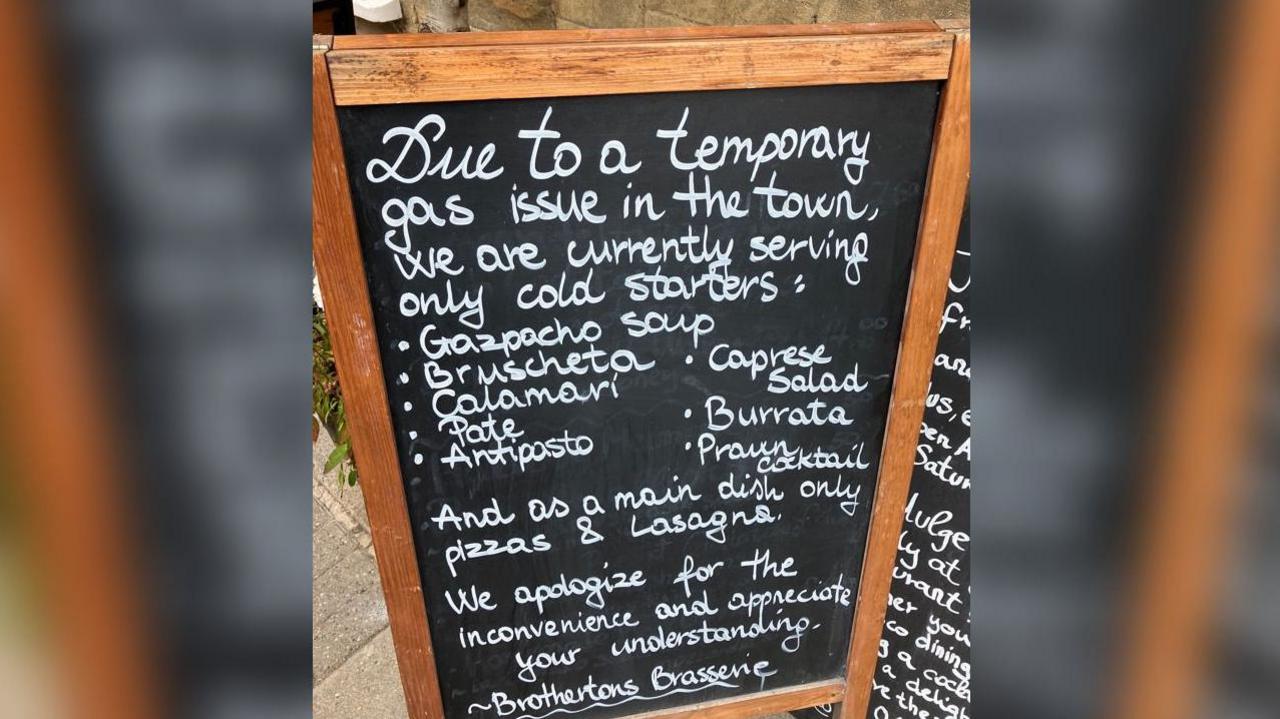 Due to a temporary
gas issue in the town,
we are currently serving
only cold starters:
• Gazpacho soup
• Bruscheta
• Calamari
• Pate
• Antipasto
• Caprese
Salad
• Burrata
• Prawn
cocktail
And as a main dish only
pizzas & Lasagna.
We apologize for the
inconvenience and appreciate
your understanding.
~Brothertons Brasserie